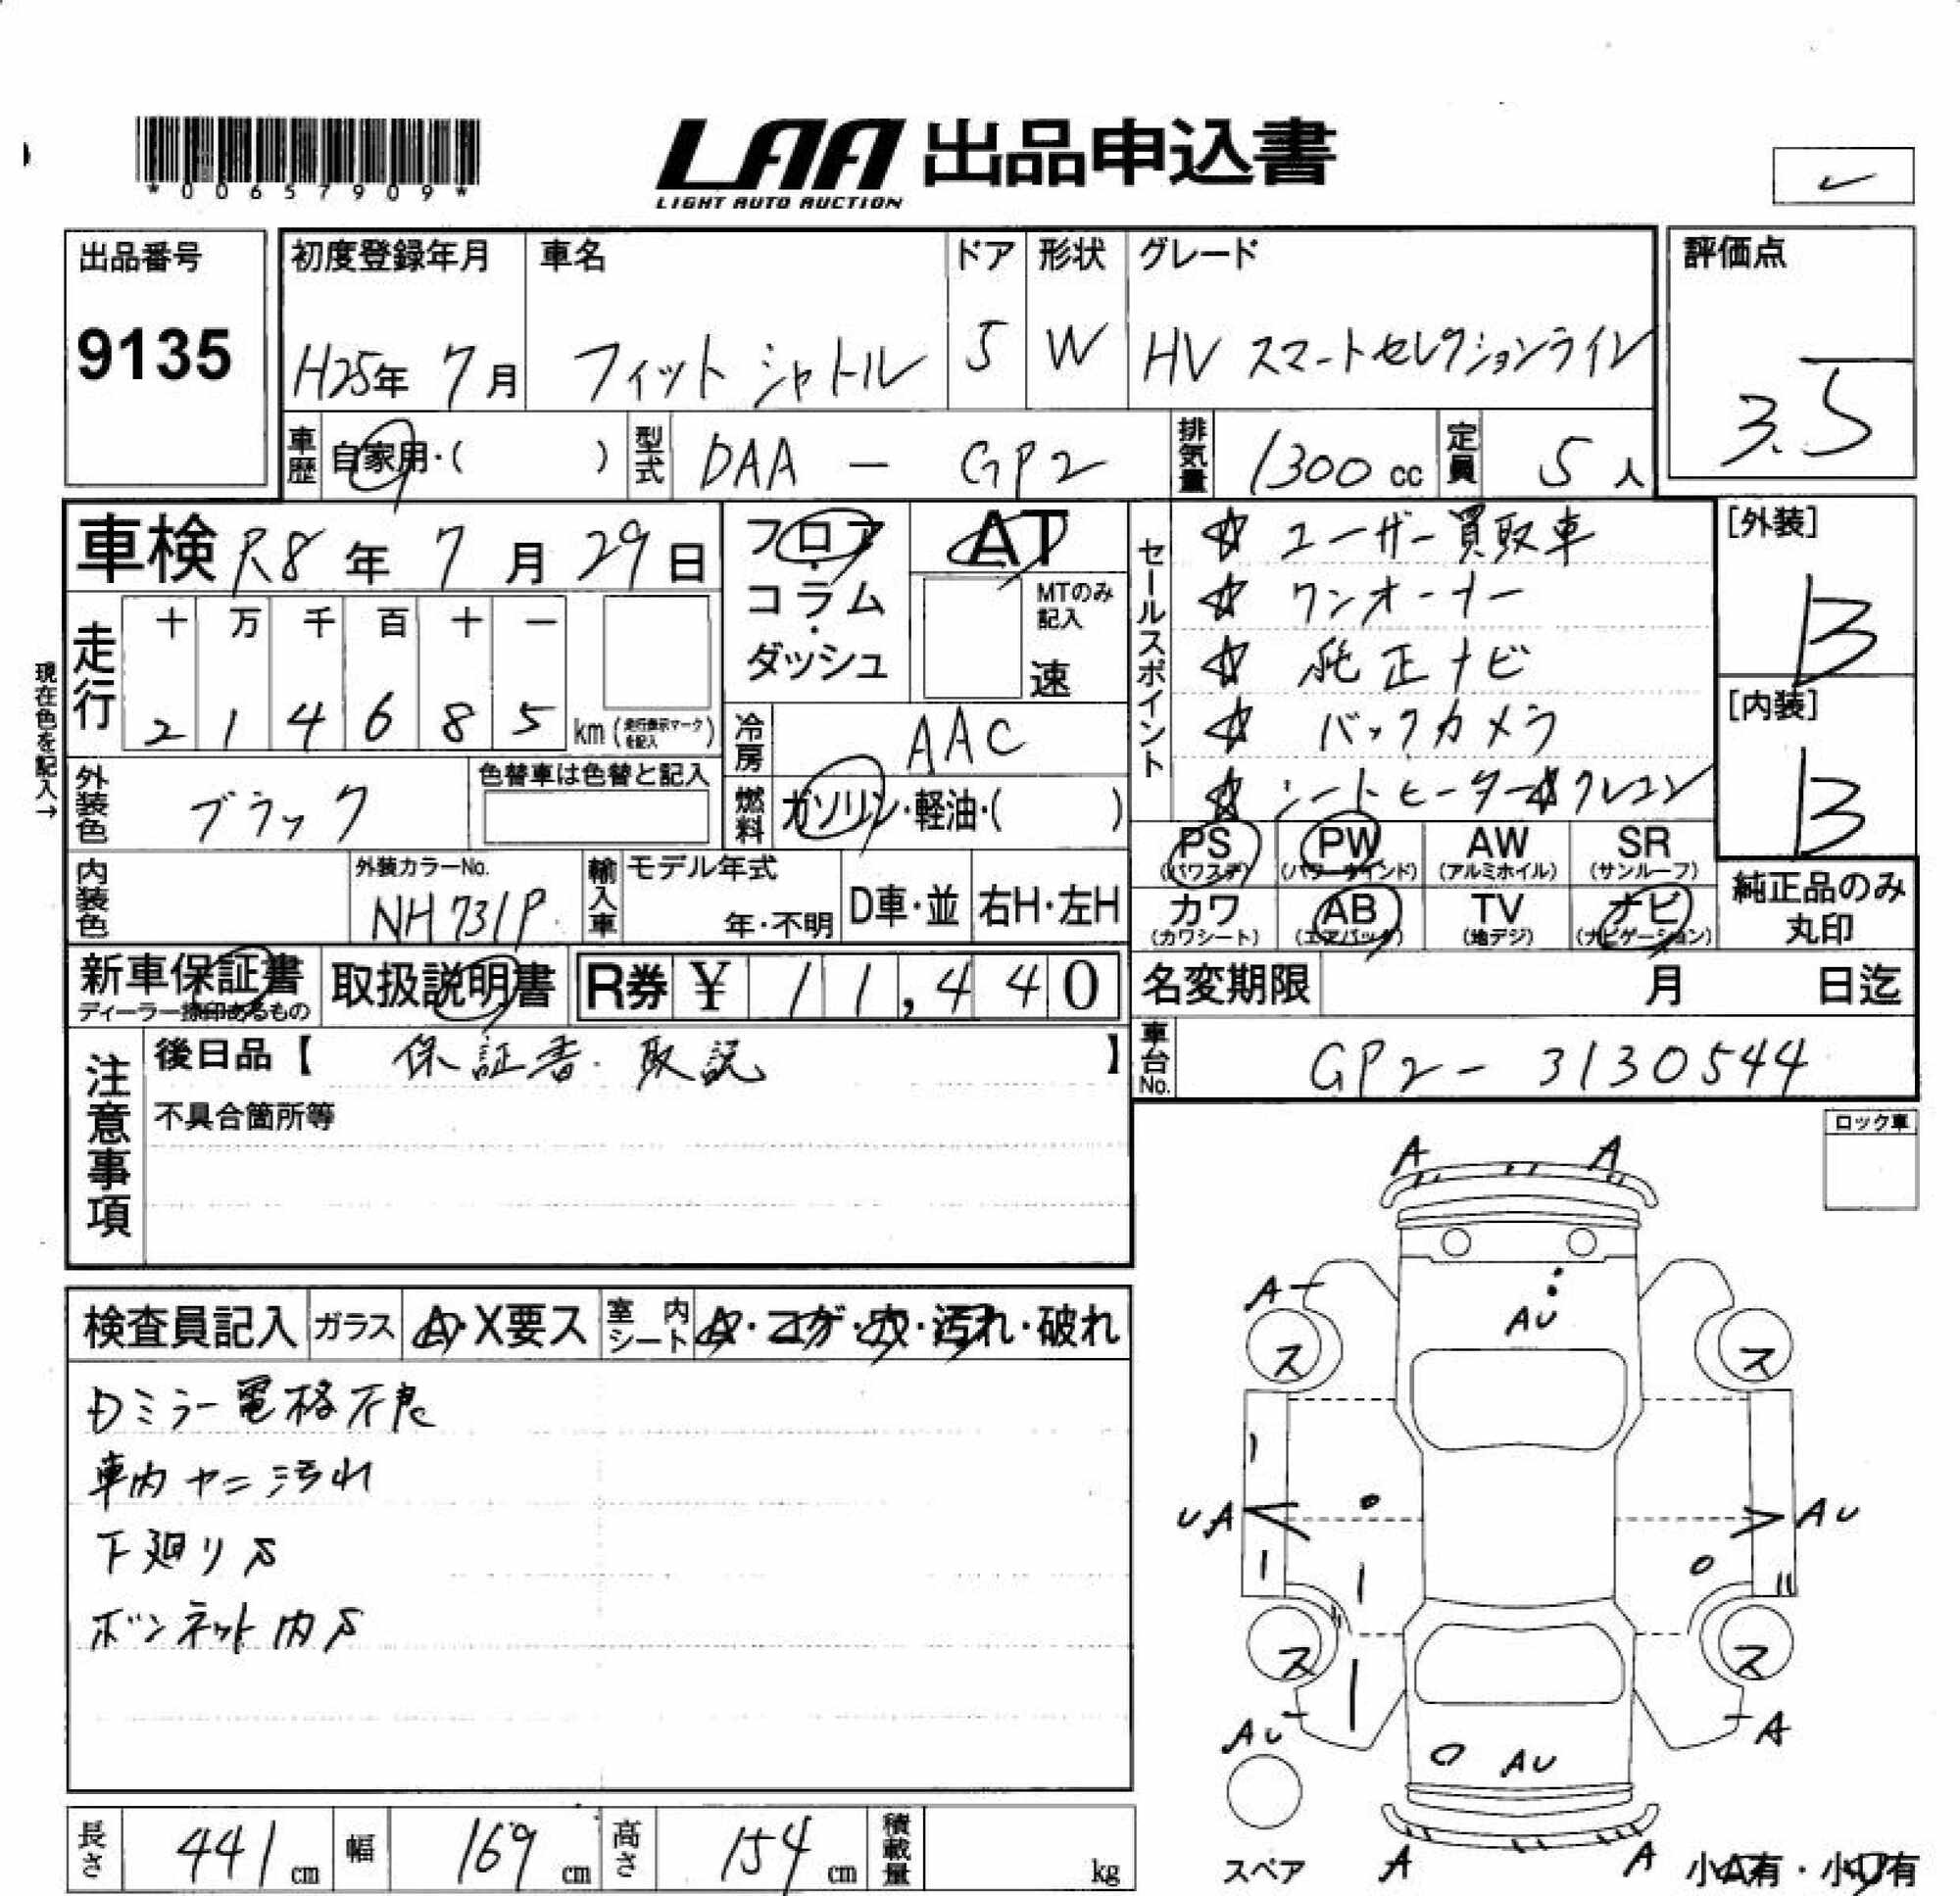 *00657909*
LAA 出品申込書
LIGHT AUTO AUCTION
出品番号
9135
初度登録年月
H25年 7月
車名
フィットシャトル
ドア
5
形状
W
グレード
HV スマートセレクションライン
評価点
3.5
車歴
自家用・( )
型式
DAA - GP2
排気量
1300 cc
定員
5 人
車検 R8年 7月 29日
フロア・コラム・ダッシュ
AT
MTのみ記入
速
セールスポイント
☆ ユーザー買取車
☆ ワンオーナー
☆ 純正ナビ
☆ バックカメラ
☆ シートヒーター☆クレコン
[外装]
B
[内装]
B
現在色を記入→
走行
十 万 千 百 十 一
2 1 4 6 8 5 km (走行表示マークを記入)
冷房
AAC
外装色
ブラック
色替車は色替と記入
燃料
ガソリン・軽油・( )
PS (パワステ)
PW (パワーウインド)
AW (アルミホイル)
SR (サンルーフ)
内装色
外装カラーNo.
NH731P
輸入車
モデル年式
年・不明
D車・並
右H・左H
カワ (カワシート)
AB (エアバック)
TV (地デジ)
ナビ (ナビゲーション)
純正品のみ
丸印
新車保証書
ディーラー捺印あるもの
取扱説明書
R券 ¥ 11,440
名変期限 月 日迄
注意事項
後日品【 保証書・取説 】
不具合箇所等
車台No.
GP2-3130544
ロック車
検査員記入
ガラス
A・X要ス
室内シート
A・コゲ・穴・汚れ・破れ
Dミラー電格不良
車内ヤニ汚れ
下廻りS
ボンネット内S
A A
A
AU
ス ス
UA AU
ス ス
AU
A
AU
A A
スペア
小A有・小U有
長さ
441 cm
幅
169 cm
高さ
154 cm
積載量
kg